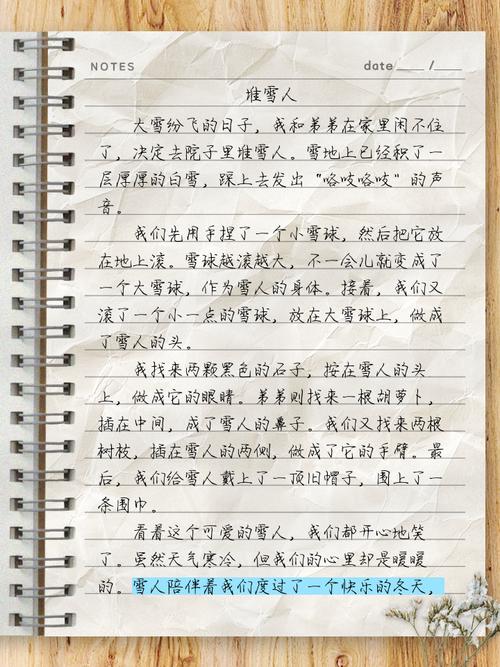 NOTES date____/____
堆雪人
大雪纷飞的日子，我和弟弟在家里闲不住
了，决定去院子里堆雪人。雪地上已经积了一
层厚厚的白雪，踩上去发出“咯吱咯吱”的声
音。
我们先用手捏了一个小雪球，然后把它放
在地上滚。雪球越滚越大，不一会儿就变成了
一个大雪球，作为雪人的身体。接着，我们又
滚了一个小一点的雪球，放在大雪球上，做成
了雪人的头。
我找来两颗黑色的石子，按在雪人的头
上，做成它的眼睛。弟弟则找来一根胡萝卜，
插在中间，成了雪人的鼻子。我们又找来两根
树枝，插在雪人的两侧，做成了它的手臂。最
后，我们给雪人戴上了一顶旧帽子，围上了一
条围巾。
看着这个可爱的雪人，我们都开心地笑
了。虽然天气寒冷，但我们的心里却是暖暖
的。雪人陪伴着我们度过了一个快乐的冬天，